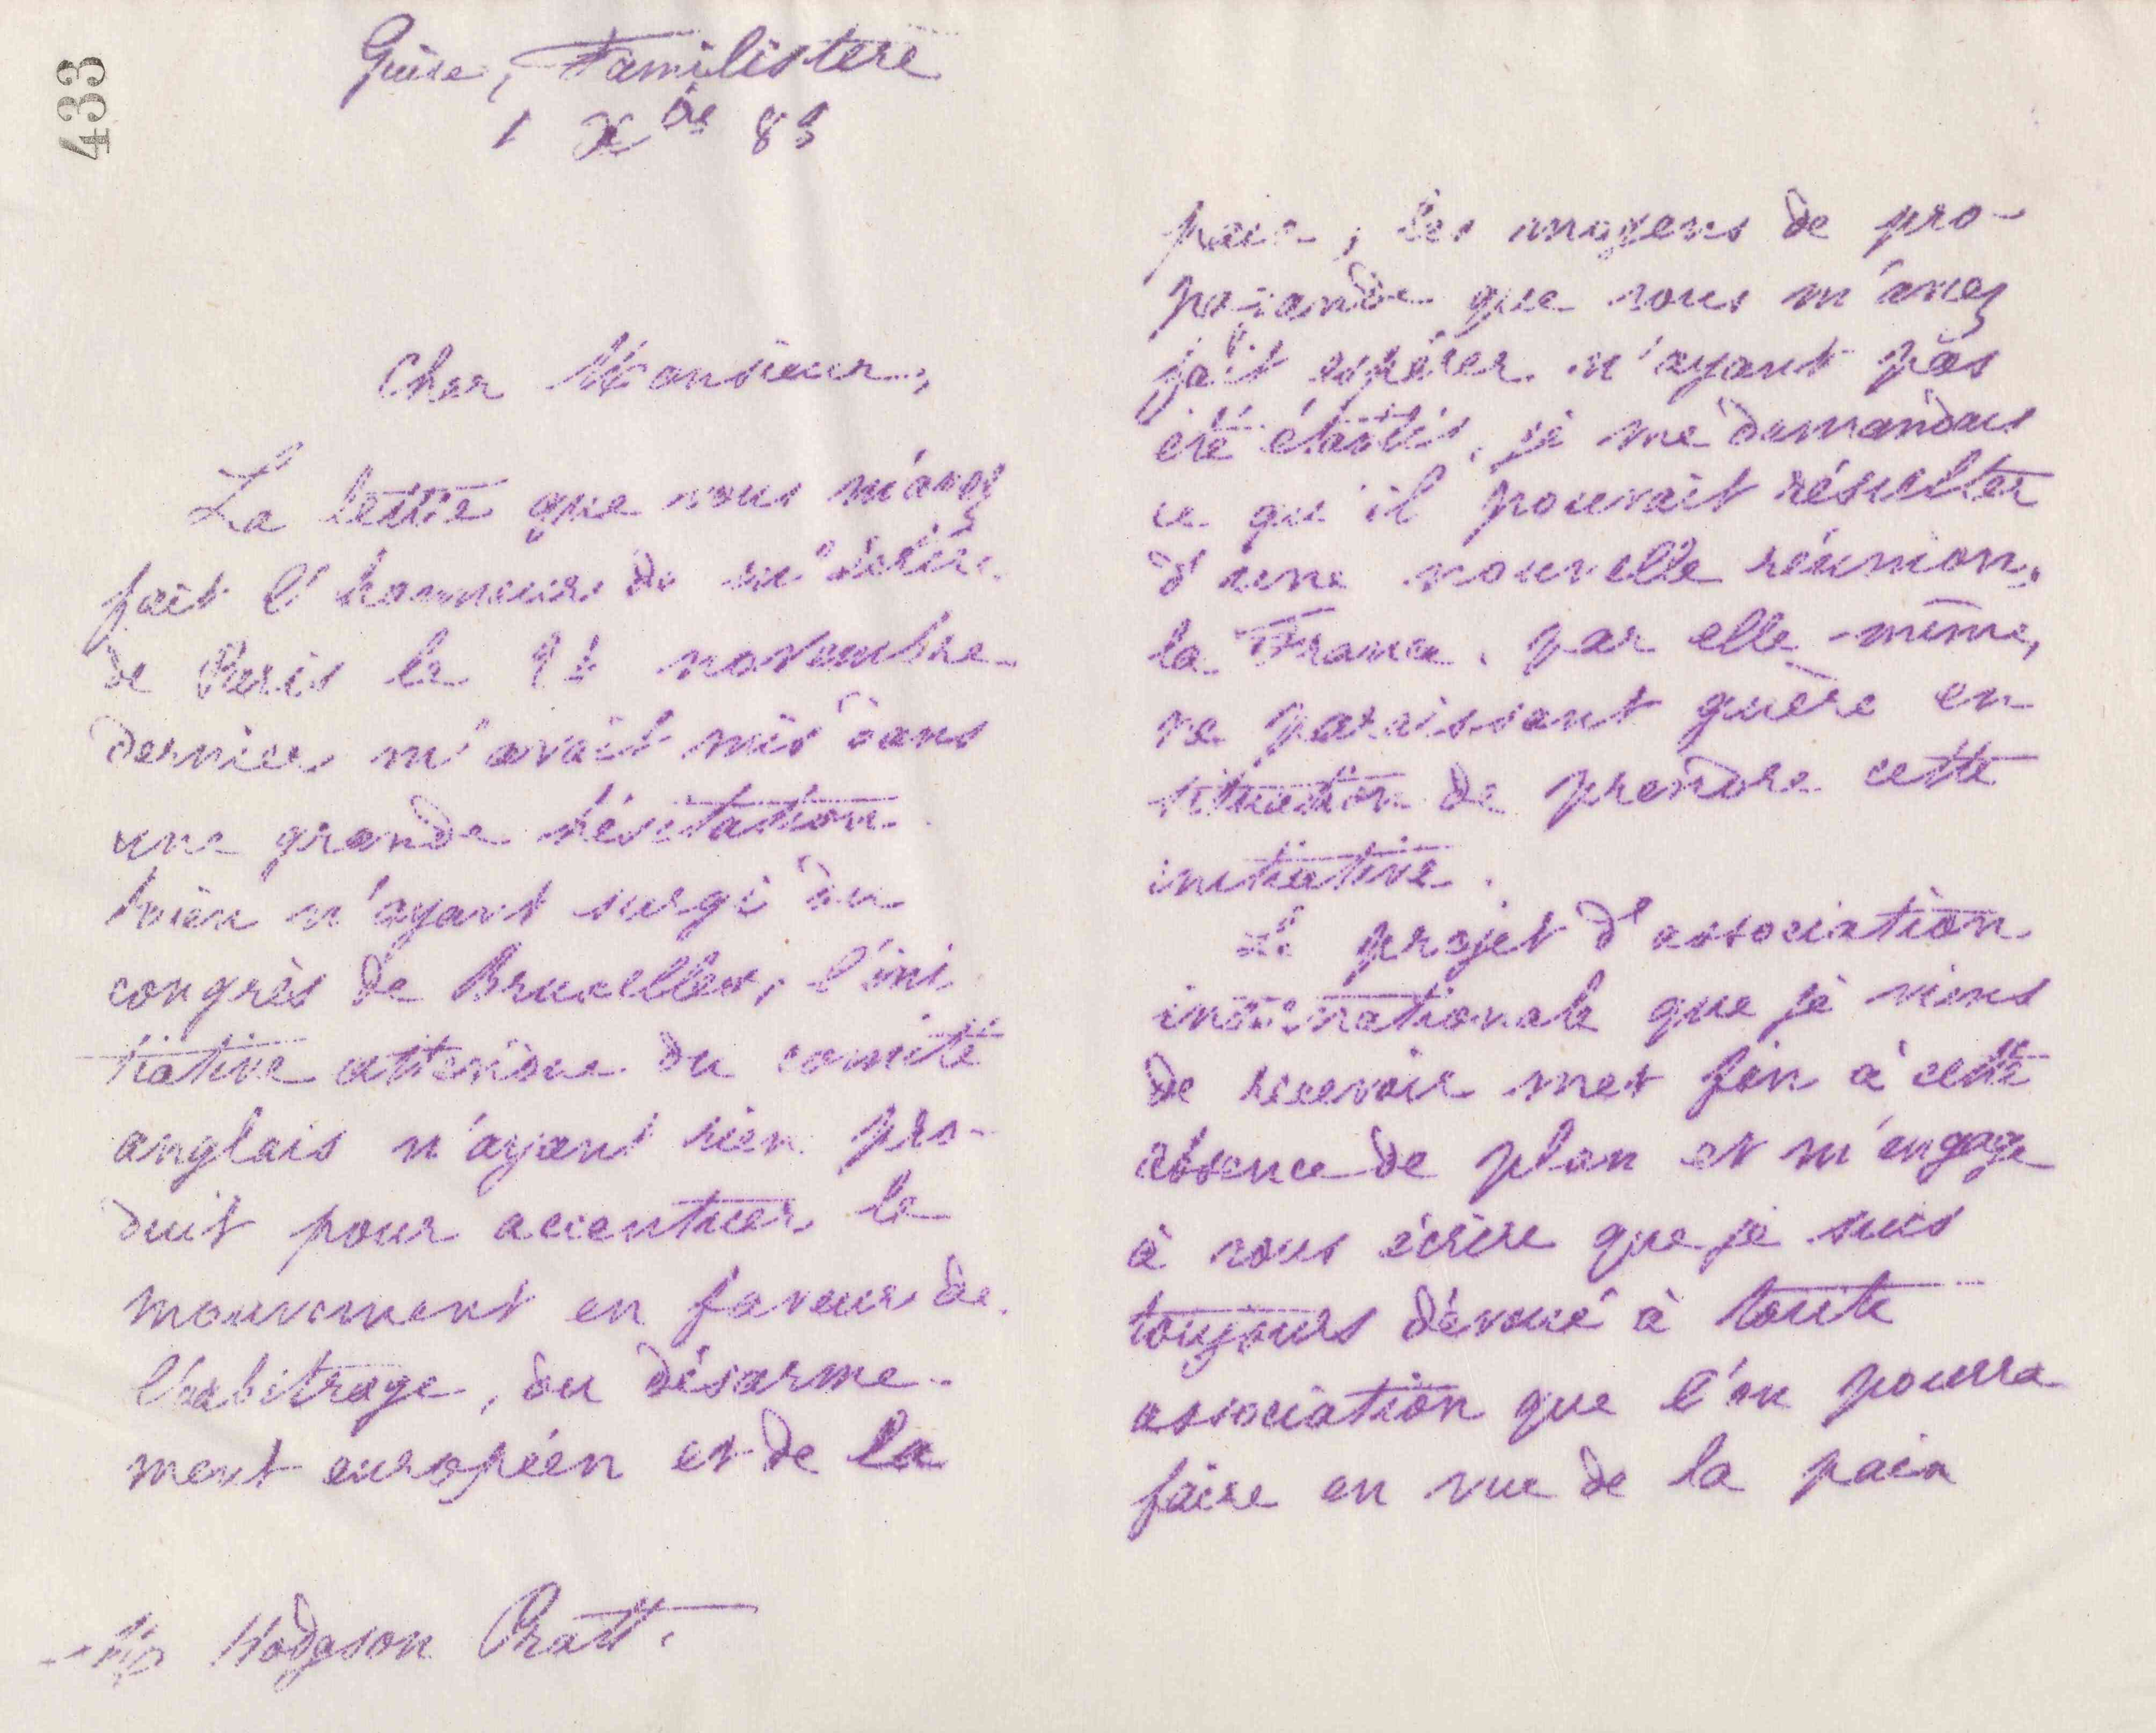 433
Guise, Familistere
1 Xbre 83
Cher Monsieur,
La lettre que vous m'avez
fait l'honneur de m'écrire
de Paris le novembre
dernier m'avait mis dans
une grande hésitation.
Rien n'ayant surgi du
congrès de Bruxelles, l'ini
tiative attendue du comité
anglais n'ayant rien pro-
duit pour accentuer le
mouvement en faveur de
l'abitrage, du désarme-
ment européen et de la
Mr Hodgson Pratt.
paix, les moyens de pro-
pagande que vous m'avez
fait espérer n'ayant pas
été établis, je me demandais
ce qu'il pouvait résulter
d'une nouvelle réunion,
la France, par elle-même,
ne paraissant guère en
situation de prendre cette
initiative.
Le projet d'association
internationale que je viens
de recevoir met fin à cette
absence de plan et m'engage
à vous écrire que je suis
toujours dévoué à toute
association que l'on pourra
faire en vue de la paix